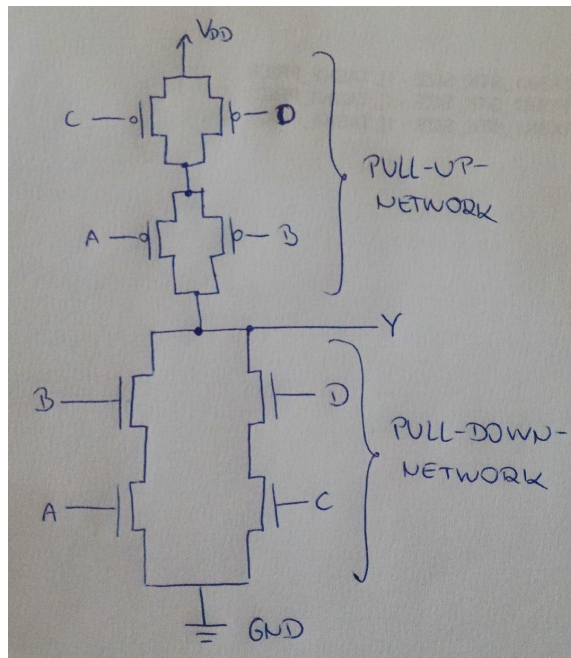 VDD
C
D
PULL-UP-
NETWORK
A
B
Y
B
D
PULL-DOWN-
NETWORK
A
C
GND